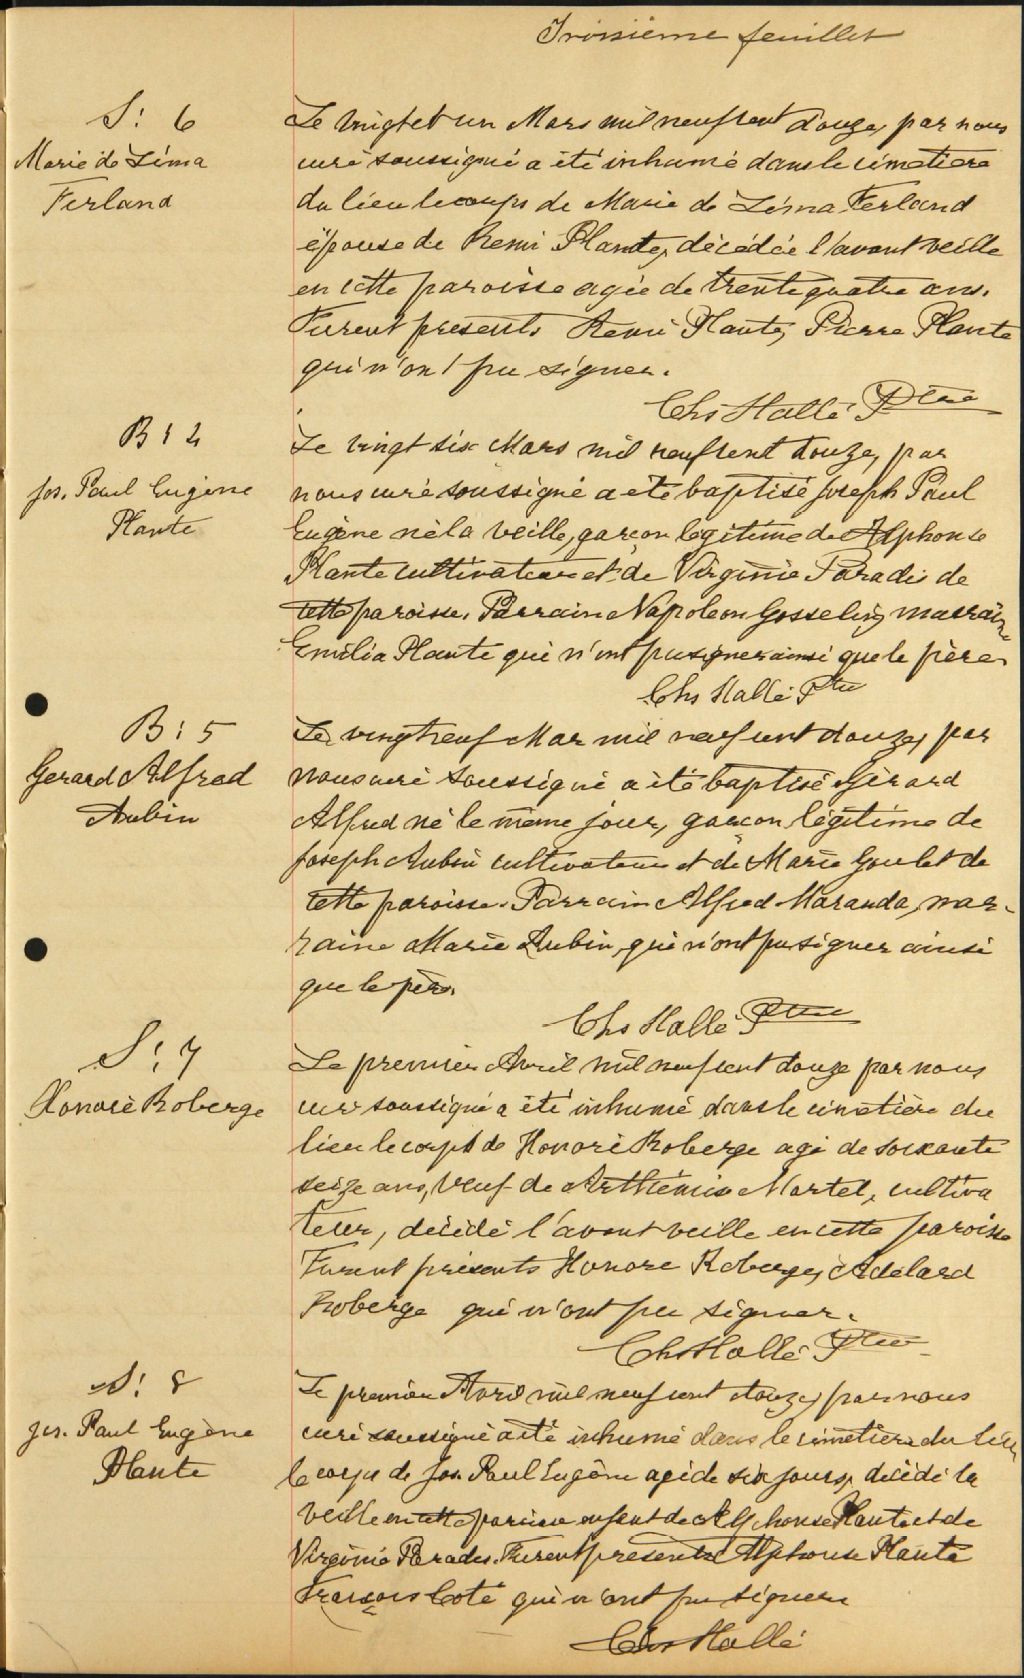 Troisième feuillet
S: 6
Marie de Léma
Ferland
Le vingt et un Mars mil neuf cent douze, par nous
curé soussigné a été inhumé dans le cimetière
du lieu le corps de Marie de Léma Ferland
épouse de Remi Plante, décédée l'avant veille
en cette paroisse agée de trente quatre ans.
Furent présents Remi Plante, Pierre Plante
qui n'ont pu signer.
Chs Hallé Ptre
B: 4
Jos. Paul Eugène
Plante
Le vingt six Mars mil neuf cent douze, par
nous curé soussigné a été baptisé Joseph Paul
Eugène né la veille, garçon légitime de Alphonse
Plante cultivateur et de Virginie Paradis de
cette paroisse. Parrain Napoléon Gosselin, marrain
Emélia Plante qui n'ont pu signer ainsi que le père.
Chs Hallé Ptre
B: 5
Gerard Alfred
Aubin
Le vingt neuf Mar mil neuf cent douze, par
nous curé soussigné a été baptisé Gérard
Alfred né le même jour, garçon légitime de
Joseph Aubin cultivateur et de Marie Goulet de
cette paroisse. Parrain Alfred Maranda, mar-
raine Marie Aubin, qui n'ont pu signer ainsi
que le père.
Chs Hallé Ptre
S: 7
Honoré Roberge
Le premier Avril mil neuf cent douze par nous
curé soussigné a été inhumé dans le cimetière du
lieu le corps de Honoré Roberge agé de soixante
seize ans, veuf de Arthémise Martel, cultiva
teur, décédé l'avant veille en cette paroisse
Furent présents Honore Roberge, Adelard
Roberge qui n'ont pu signer.
Chs Hallé Ptre
S: 8
Jos. Paul Eugène
Plante
Le premier Avril mil neuf cent douze, par nous
curé soussigné a été inhumé dans le cimetière du lieu
le corps de Jos. Paul Eugène agé de six jours, décédé la
veille en cette paroisse enfant de Alphonse Plante et de
Virginie Parades. Furent présents Alphonse Plante
François Coté qui n'ont pu signer
Chs Hallé